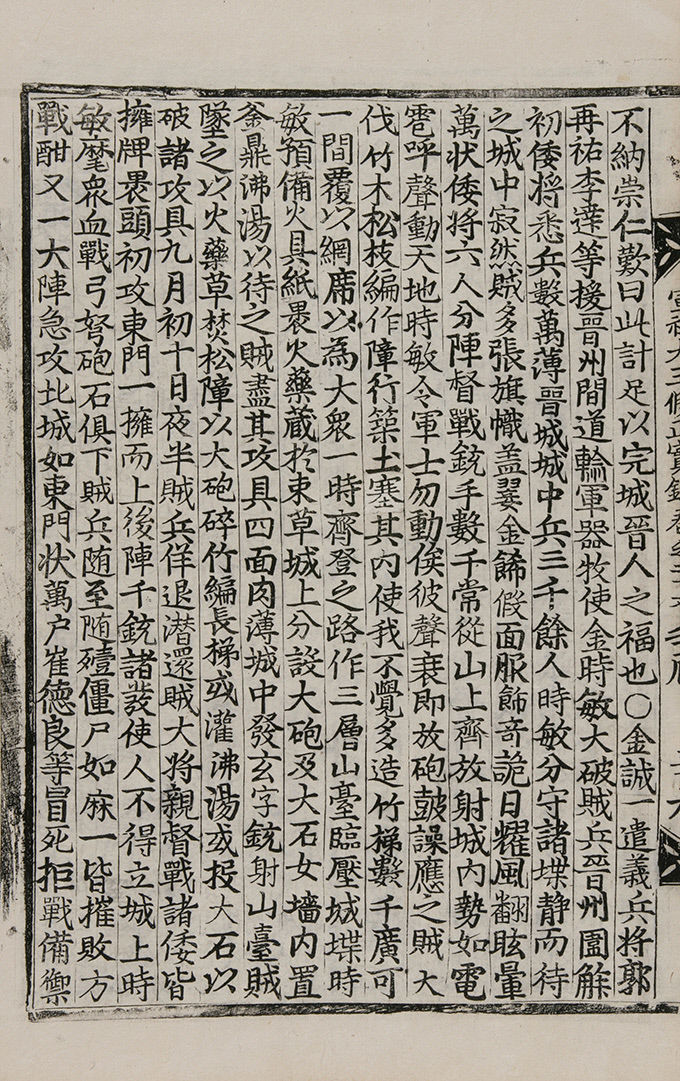 不納崇仁歎曰此計足以完城晉人之福也○金誠一遣義兵將郭
再祐李達等援晉州間道輸軍器牧使金時敏大破賊兵晉州圍解
初倭將悉兵數萬薄晉城城中兵三千餘人時敏分守諸堞静而待
之城中寂然賊多張旗幟盖翣金餙假面服飾竒詭日耀風翻眩暈
萬状倭將六人分陣督戰銃手數千常從山上齊放射城内勢如電
雹呼聲動天地時敏令軍士勿動俟彼聲衰即放砲皷譟應之賊大
伐竹木松枝編作障行築土塞其内使我不覺多造竹梯數千廣可
一間覆以網席以為大衆一時齊登之路作三層山臺臨壓城堞時
敏預備火具紙褁火藥蔵於束草城上分設大砲及大石女墻内置
釜鼎沸湯以待之賊盡其攻具四面肉薄城中發玄字銃射山臺賊
墜之以火藥草焚松障以大砲碎竹編長梯或灌沸湯或投大石以
破諸攻具九月初十日夜半賊兵佯退潜還賊大將親督戰諸倭皆
擁牌褁頭初攻東門一擁而上後陣千銃諸發使人不得立城上時
敏麾衆血戰弓弩砲石俱下賊兵随至随殪僵尸如麻一皆摧敗方
戰酣又一大陣急攻北城如東門状萬户崔德良等冒死拒戰備禦